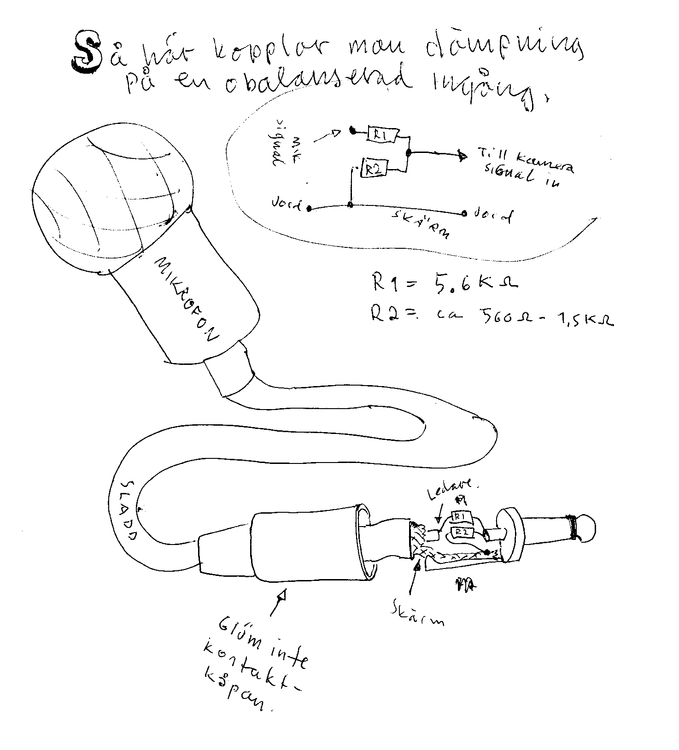 Så här kopplar man dämpning
på en obalanserad ingång.
Mik
signal
R1
R2
Till kamera
signal in
Jord
SKÄRM
Jord
R1 = 5.6 KΩ
R2 = ca 560Ω - 1,5KΩ
MIKROFON
SLADD
Ledare.
R1
R2
Skärm
Glöm inte
kontakt-
kåpan.